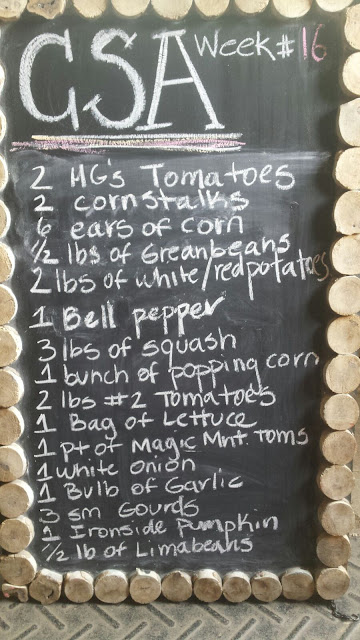 CSA Week #16
2 HG's Tomatoes
2 cornstalks
6 ears of corn
1/2 lbs of Greanbeans
2 lbs of white/red potatoes
1 Bell pepper
3 lbs of squash
1 bunch of popping corn
2 lbs #2 Tomatoes
1 Bag of Lettuce
1 pt of Magic Mnt. Toms
1 White onion
1 Bulb of Garlic
3 sm Gourds
1 Ironside Pumpkin
1/2 lb of Limabeans